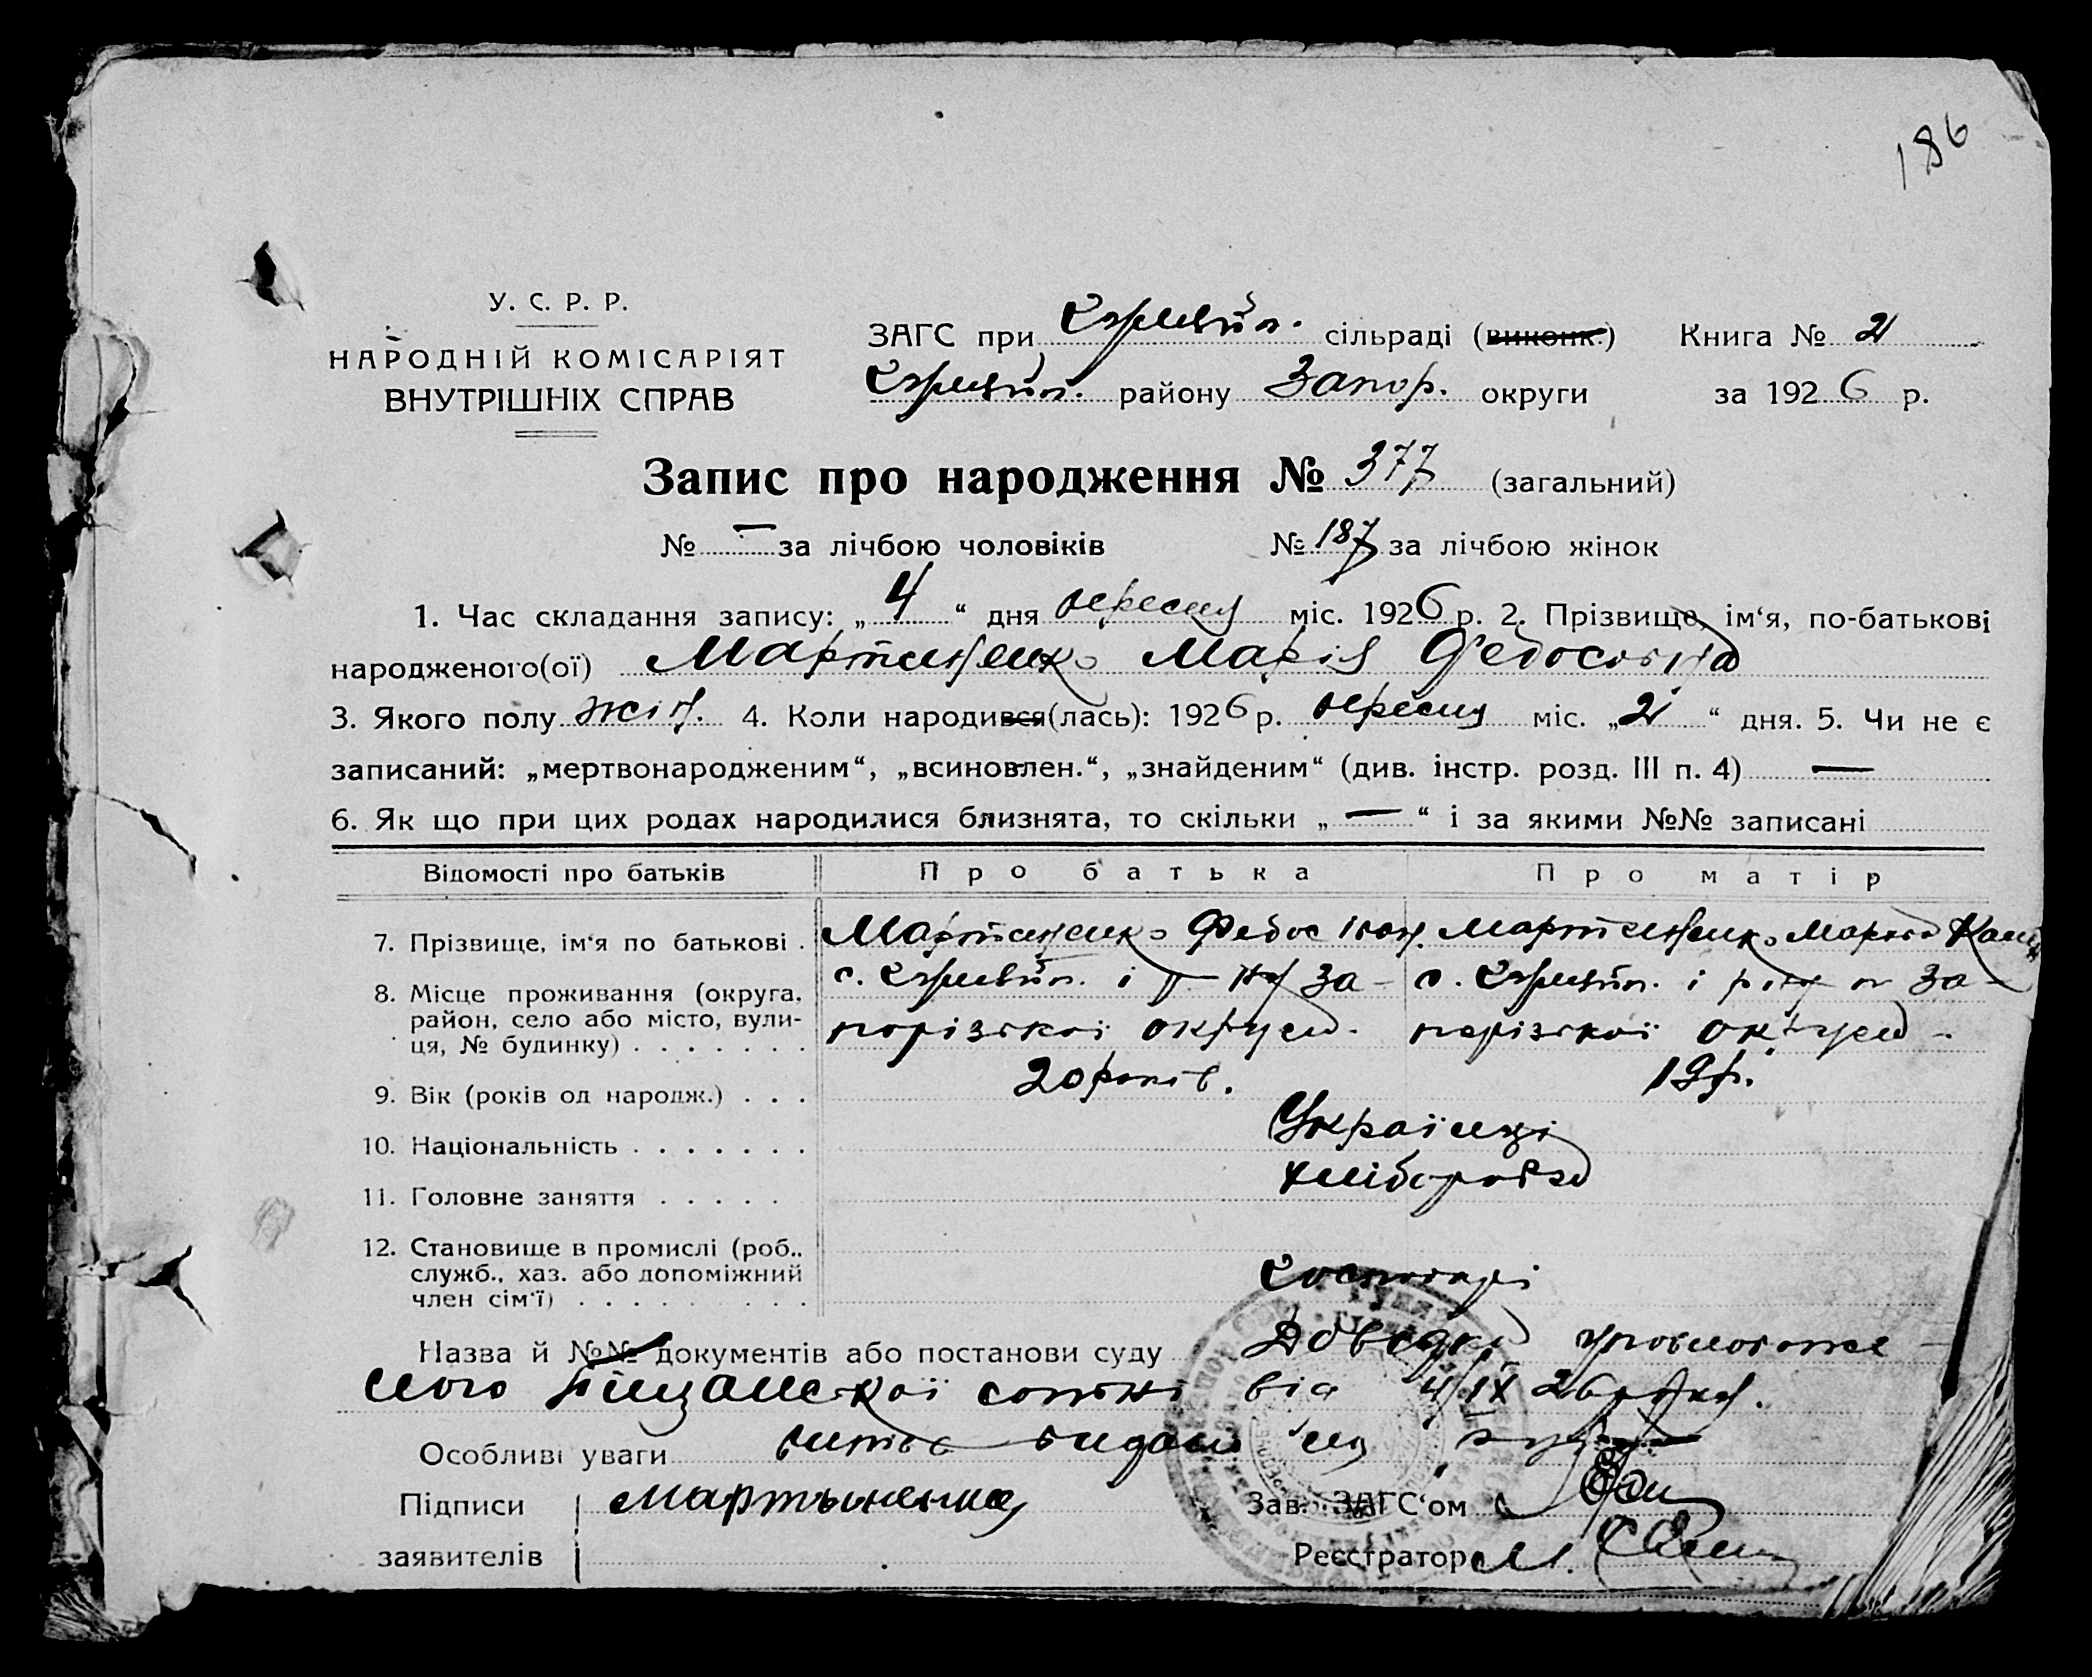 186
У. С. Р. Р.
НАРОДНІЙ КОМІСАРІЯТ
ВНУТРІШНІХ СПРАВ
ЗАГС при сільраді (виконк.) Книга № 2
району Запор. округи за 1926 р.
Запис про народження № 377 (загальний)
№ — за лічбою чоловіків № 187 за лічбою жінок
1. Час складання запису: „ 4 “ дня вересня міс. 1926 р. 2. Прізвище, ім‘я, по-батькові
народженого(ої) Мартиненко Марія Федосовна
3. Якого полу жін. 4. Коли народився(лась): 1926 р. вересня міс. „ 2 “ дня. 5. Чи не є
записаний: „мертвонародженим“, „всиновлен.“, „знайденим“ (див. інстр. розд. III п. 4) —
6. Як що при цих родах народилися близнята, то скільки „ — “ і за якими №№ записані
Відомості про батьків Про батька Про матір
7. Прізвище, ім‘я по батькові . Мартиненко Федос Іван. Мартиненко
8. Місце проживання (округа, с. і р-ну За- с. і За-
район, село або місто, вули- порізкої округи. порізкої округи.
ця, № будинку) . . . . . . .
9. Вік (років од народж.) . . . 20 років. 19 р.
10. Національність . . . . . . . Українці
11. Головне заняття . . . . . хлібороби
12. Становище в промислі (роб.,
служб., хаз. або допоміжний
член сім‘ї) . . . . . . . . . Господарі
Назва й №№ документів або постанови суду Довідки уповноваже-
ного сотні від 4/IX 26 року.
Особливі уваги витяг видано на
Підписи Мартыненко Зав. ЗАГС‘ом
заявителів Реєстратор